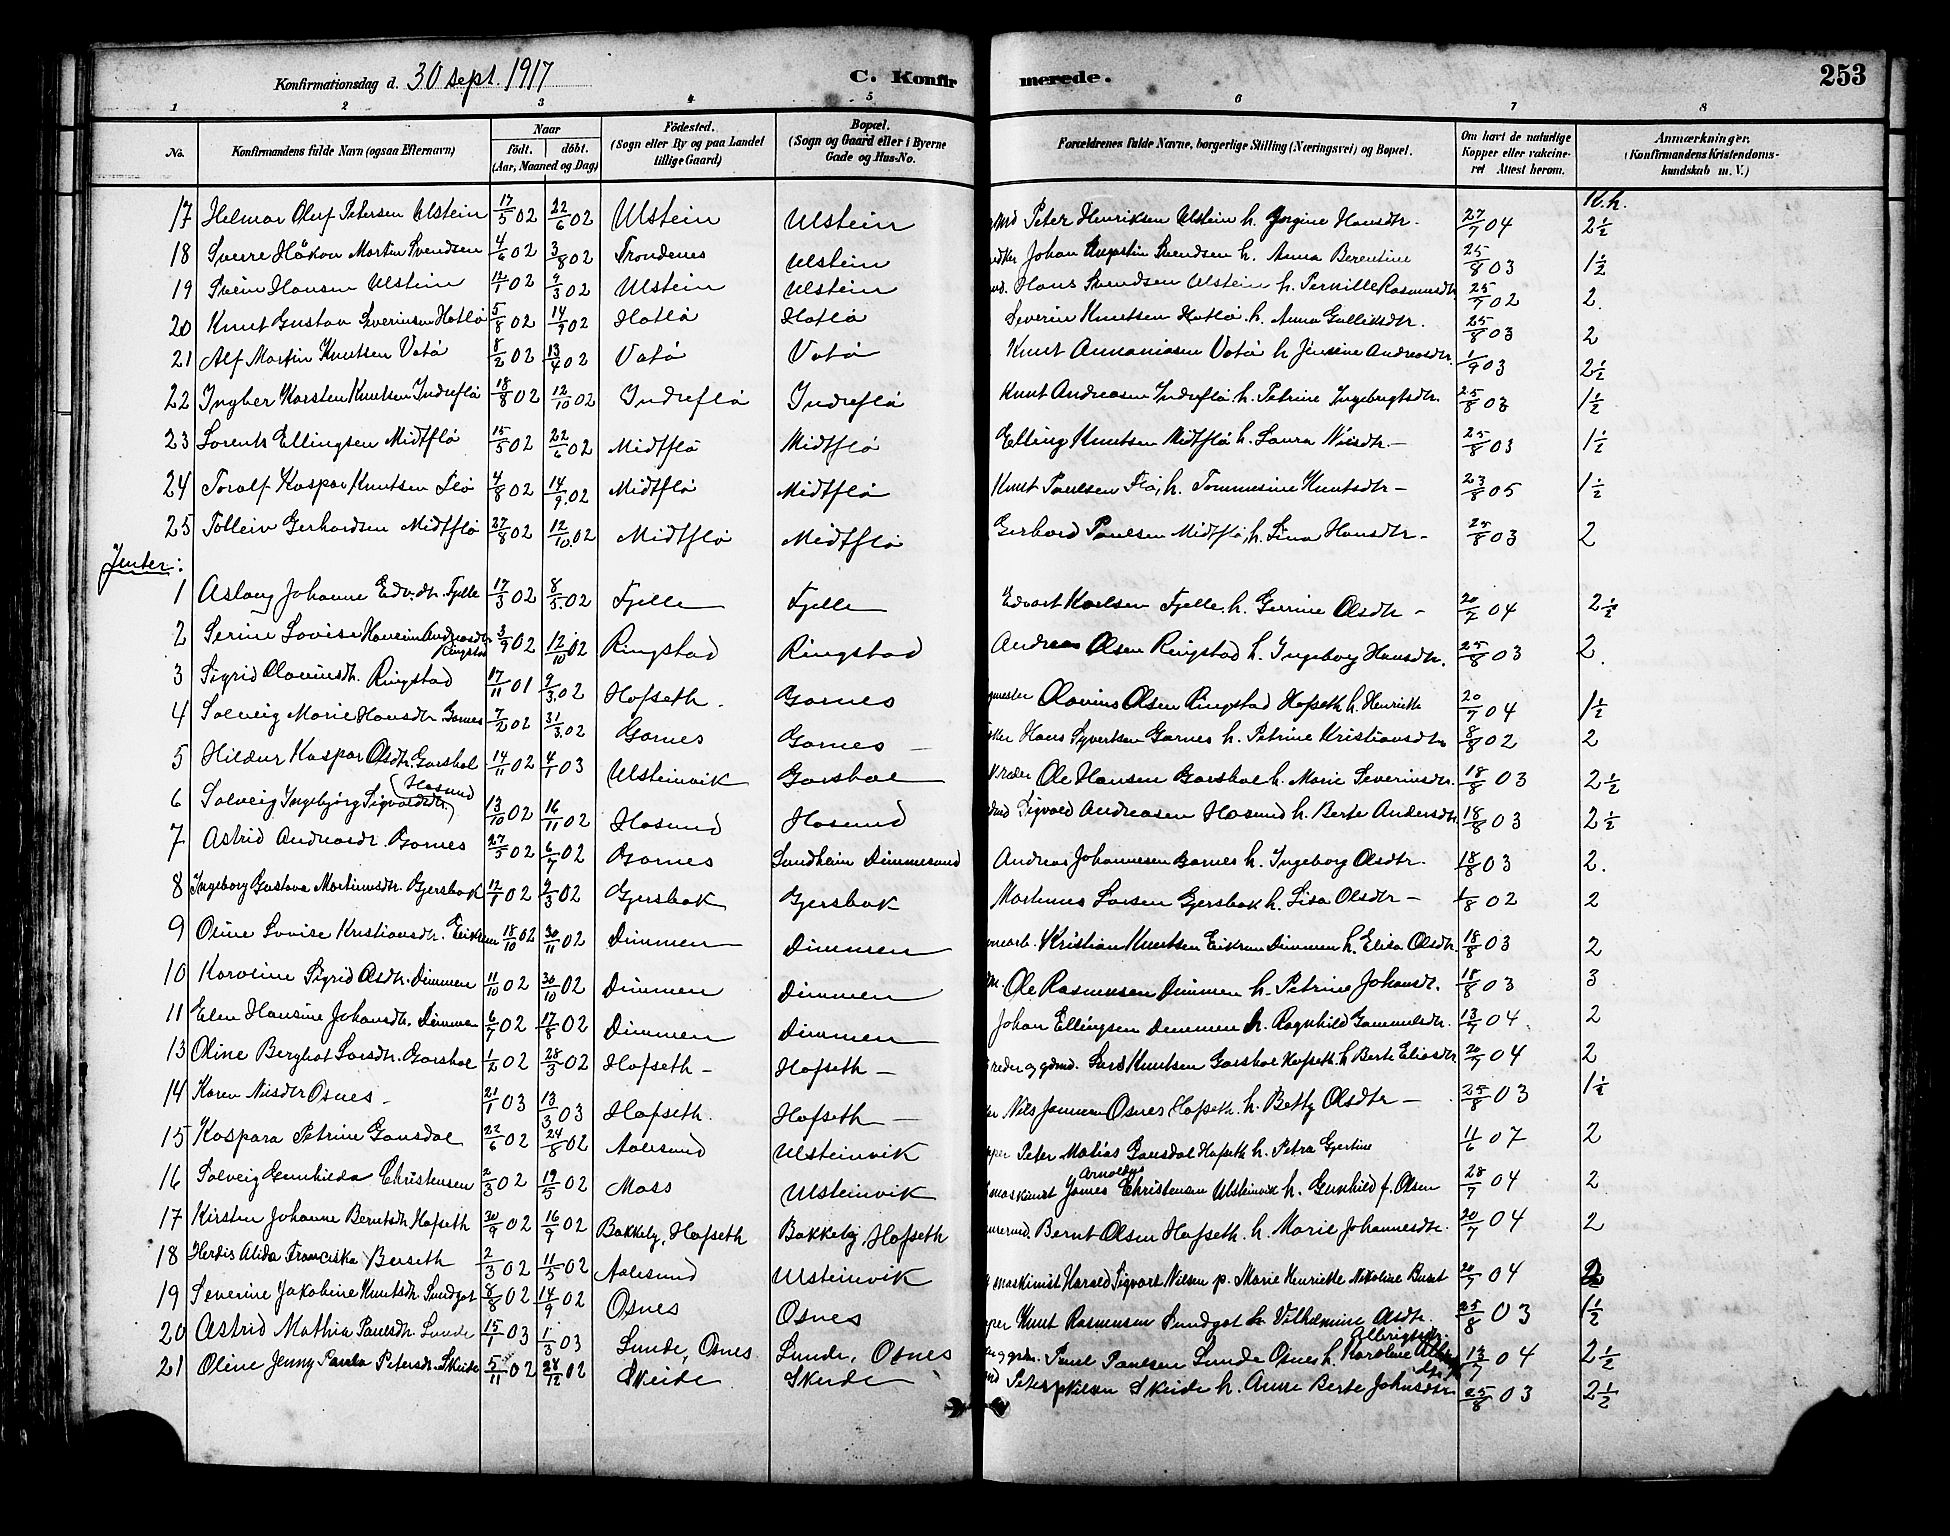 Konfirmationsdag d. 30 sept. 1917
C. Konfirmerede.
253
1 2 3 4 5 6 7 8
No. Konfirmandens fulde Navn (ogsaa Efternavn) Naar født. døbt. (Aar, Maaned og Dag) Fødested. (Sogn eller By og paa Landet tillige Gaard) Bopæl. (Sogn og Gaard eller i Byerne Gade og Hus-No. Forældrenes fulde Navne, borgerlige Stilling (Næringsvei) og Bopæl. Om havt de naturlige Kopper eller vakcineret Attest herom. Anmærkninger. (Konfirmandens Kristendomskundskab m. V.)
K.h.
17 Helmar Oluf Petersen Ulstein 17/5 02 22/6 02 Ulstein Ulstein Peter Henriksen Ulstein h. Jørgine Hansdtr. 27/7 04 2½
18 Sverre Håkon Martin Svendsen 4/6 02 3/8 02 Trondenes Ulstein Johan Augustin Svendsen h. Anna Berentine 25/8 03 1½
19 Svein Hansen Ulstein 12/1 02 9/3 02 Ulstein Ulstein Hans Svendsen Ulstein h. Pernille Rasmusdtr 25/7 02 2.
20 Knut Gustav Severinsen Hatlø 5/8 02 14/9 02 Hatlø Hatlø Severin Knutsen Hatlø h. Anna Gulliksdtr. 25/8 03 2
21 Alf Martin Knutsen Vatø 8/2 02 13/4 02 Vatø Vatø Knut Ananiasen Vatø h. Jensine Andreasdtr. 1/9 03 2½
22 Ingber Karsten Knutsen Indreflø 18/8 02 12/10 02 Indreflø Indreflø Knut Andreasen Indreflø h. Petrine Ingebrigtsdtr. 25/8 03 1½
23 Lorents Ellingsen Midtflø 15/5 02 22/6 02 Midtflø Midtflø Elling Knutsen Midtflø h. Laura Nilsdtr. – 25/8 03 1½
24 Toralf Kaspar Knutsen Flø 4/8 02 14/9 02 Midtflø Midtflø Knut Paulsen Flø, h. Tommesine Knutsdtr – 23/8 05 1½
25 Tolleiv Gerhardsen Midtflø 27/8 02 12/10 02 Midtflø Midtflø Gerhard Paulsen Midtflø, h. Lina Hansdtr – 25/8 03 2
Jenter:
1 Aslaug Johanne Edv.dtr. Fjelle 17/3 02 8/5 02 Fjelle Fjelle Edvart Karlsen Fjelle, h. Gerrine Olsdtr – 20/7 04 2½
2 Serine Lovise Andreasdtr Ringstad 3/9 02 12/10 02 Ringstad Ringstad Andreas Olsen Ringstad h. Ingeborg Hansdtr. 25/8 03 2.
3 Sigrid Olavinsdtr. Ringstad 17/11 01 9/3 02 Hofseth. Garnes Olavius Olsen Ringstad Hofseth h. Henrikke 20/7 04 1½
4 Solveig Marie Hansdtr Garnes 7/2 02 31/3 02 Garnes Garnes – Hans Syvertsen Garnes h. Petrine Kristiansdtr 8/8 02 2
5 Hildur Kaspar Olsdtr. Garshol 14/11 02 4/1 03 Ulsteinvik Garshol Ole Hansen Garshol h. Marie Severinsdtr. 18/8 03 2½
6 Solveig Ingebjørg Sigvaldsdtr (Hasund) 13/10 02 16/11 02 Hasund Hasund Sigvald Andreasen Hasund h. Berte Andersdtr 18/8 03 2½
7 Astrid Andreasdtr. Garnes 27/5 02 6/7 02 Garnes Sundheim Dimmesund Andreas Johannesen Garnes h. Ingeborg Olsdtr. 18/8 03 2.
8 Ingeborg Gustava Martinusdtr. Gjersbak 12/1 02 2/3 02 Gjersbak Gjersbak Martinus Larsen Gjersbak h. Lisa Olsdtr – 1/8 02 2
9 Osine Lovise Kristiansdtr. Eikrem 18/10 02 30/11 02 Dimmen Dimmen Kristian Knutsen Eikrem Dimmen h. Elisa Olsdtr. 18/8 03 2
10 Karoline Sigrid Olsdtr. Dimmen 11/10 02 30/10 02 Dimmen Dimmen Ole Rasmussen Dimmen h. Petrine Johansdtr. 18/8 03 3
11 Elen Hansine Johansdtr. Dimmen 6/7 02 17/8 02 Dimmen Dimmen Johan Ellingsen Dimmen h. Ragnhild Gammelsdtr. 13/7 04. 2
13 Oline Berghot Larsdtr. Garshol 1/2 02 28/3 02 Hofseth – Hofseth – Lars Knutsen Garshol Hofseth h Berte Eliasdtr 20/7 04 2
14 Karen Nilsdtr Osnes – 21/1 03 13/3 03 Hofseth. Hofseth – Nils Jonmen Osnes Hofseth h. Betty Olsdtr – 25/8 03 1½
15 Kaspara Petrine Gausdal 22/6 02 24/8 02 Aalesund Ulsteinvik Peter Matias Gausdal Hofseth h. Petra Gjertine 11/6 07 2
16 Solveig Gunhilda Christensen 2/3 02 19/5 02 Moss Ulsteinvik maskinist James Arnoldus Christensen Ulsteinvik h. Gunhild f. Olsen 28/7 04 2
17 Kirsten Johanne Berntsdtr Hofseth 30/9 02 16/9 02 Bakkeby, Hofseth Bakkeby Hofseth Bernt Olsen Hofseth. h. Marie Johannesdtr. 20/7 04 2
18 Herdis Alida Franciska Berseth 2/3 02 11/5 02 Aalesund Ulsteinvik maskinist Harald Sigvart Nilsen p. Marie Henrikke Nikoline 20/7 04 2
19 Severine Jakobine Knutsdtr Sundgot 8/8 02 14/9 02 Osnes Osnes Knut Rasmussen Sundgot h. Vilhelmine Olsdtr. 25/8 03 1½
20 Astrid Mathia Paulsdtr. Lunde 15/1 03 1/3 03 Lunde, Osnes. Lunde, Osnes Paul Paulsen Lunde Osnes h. Karoline Albrigtsdtr. 13/7 04 2½
21 Oline Jenny Paula Petersdtr. Skeide 5/11 02 28/12 02 Skeide Skeide Peter Nilsen Skeide h. Anne Berte Johnsdtr. 25/8 03 2½